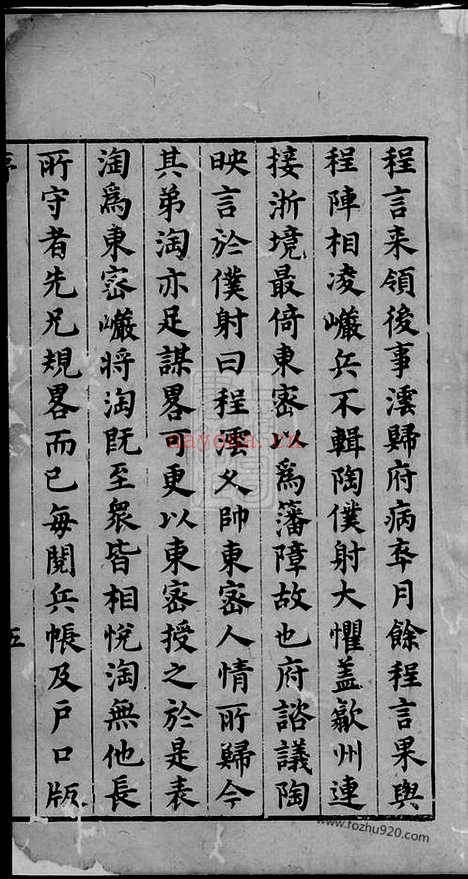 程言來領後事澐歸府病卒月餘程言果與
程陣相凌巗兵不輯陶僕射大懼盖歙州連
接浙境最倚東宻以爲藩障故也府諮議陶
映言於僕射曰程澐父帥東宻人情所歸今
其弟淘亦足謀畧可更以東宻授之於是表
淘爲東宻巗將淘既至衆皆相悅淘無他長
所守者先兄規畧而已每閱兵帳及戸口版
序
五
nayona.cn
www.fozhu920.com